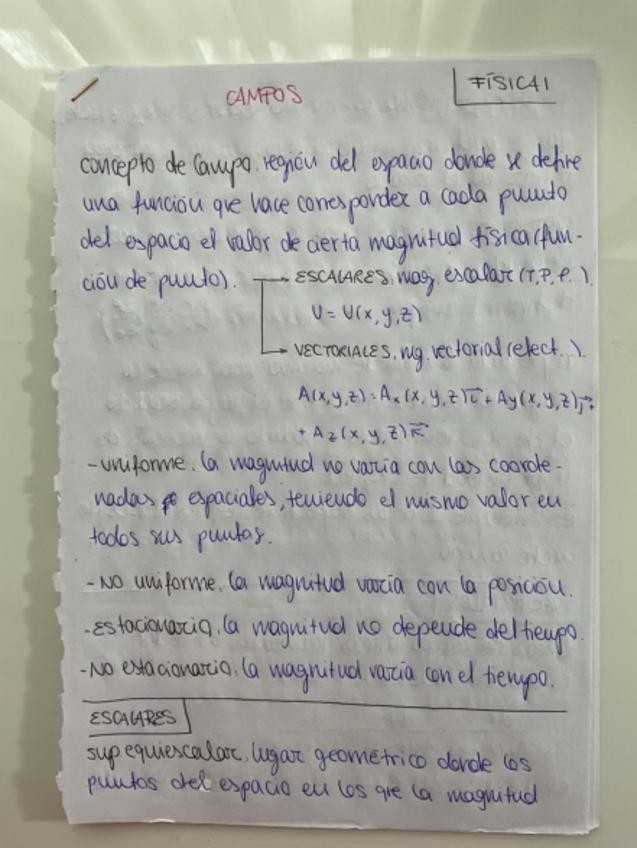 CAMPOS
FÍSICA I
concepto de Campo. región del espacio donde se define
una función que hace corresponder a cada punto
del espacio el valor de cierta magnitud física (fun-
ción de punto). → ESCALARES. mag. escalar (T, P, ρ...).
U = U(x, y, z)
→ VECTORIALES. mg. vectorial (elect...).
A(x, y, z) = Ax(x, y, z) i⃗ + Ay(x, y, z) j⃗ +
+ Az(x, y, z) k⃗
- uniforme. la magnitud no varía con las coorde-
nadas espaciales, teniendo el mismo valor en
todos sus puntos.
- NO uniforme. la magnitud varía con la posición.
- Estacionario. la magnitud no depende del tiempo.
- No estacionario. la magnitud varía con el tiempo.
ESCALARES
sup equiescalar. lugar geométrico donde los
puntos del espacio en los que la magnitud